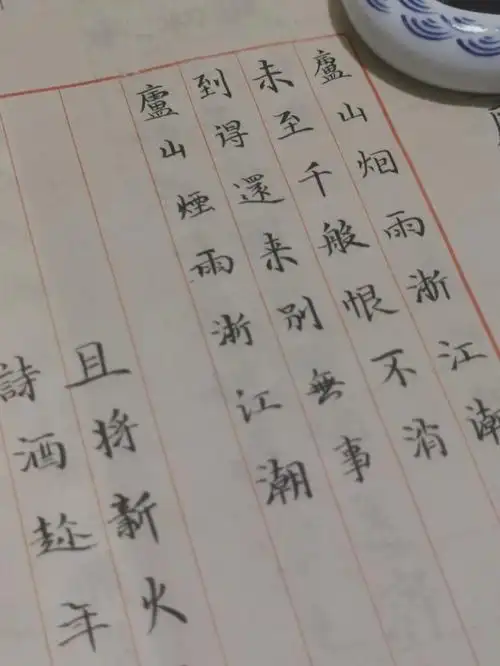 廬山烟雨浙江潮
未至千般恨不消
到得還来别無事
廬山煙雨浙江潮
且将新火
詩酒趂年